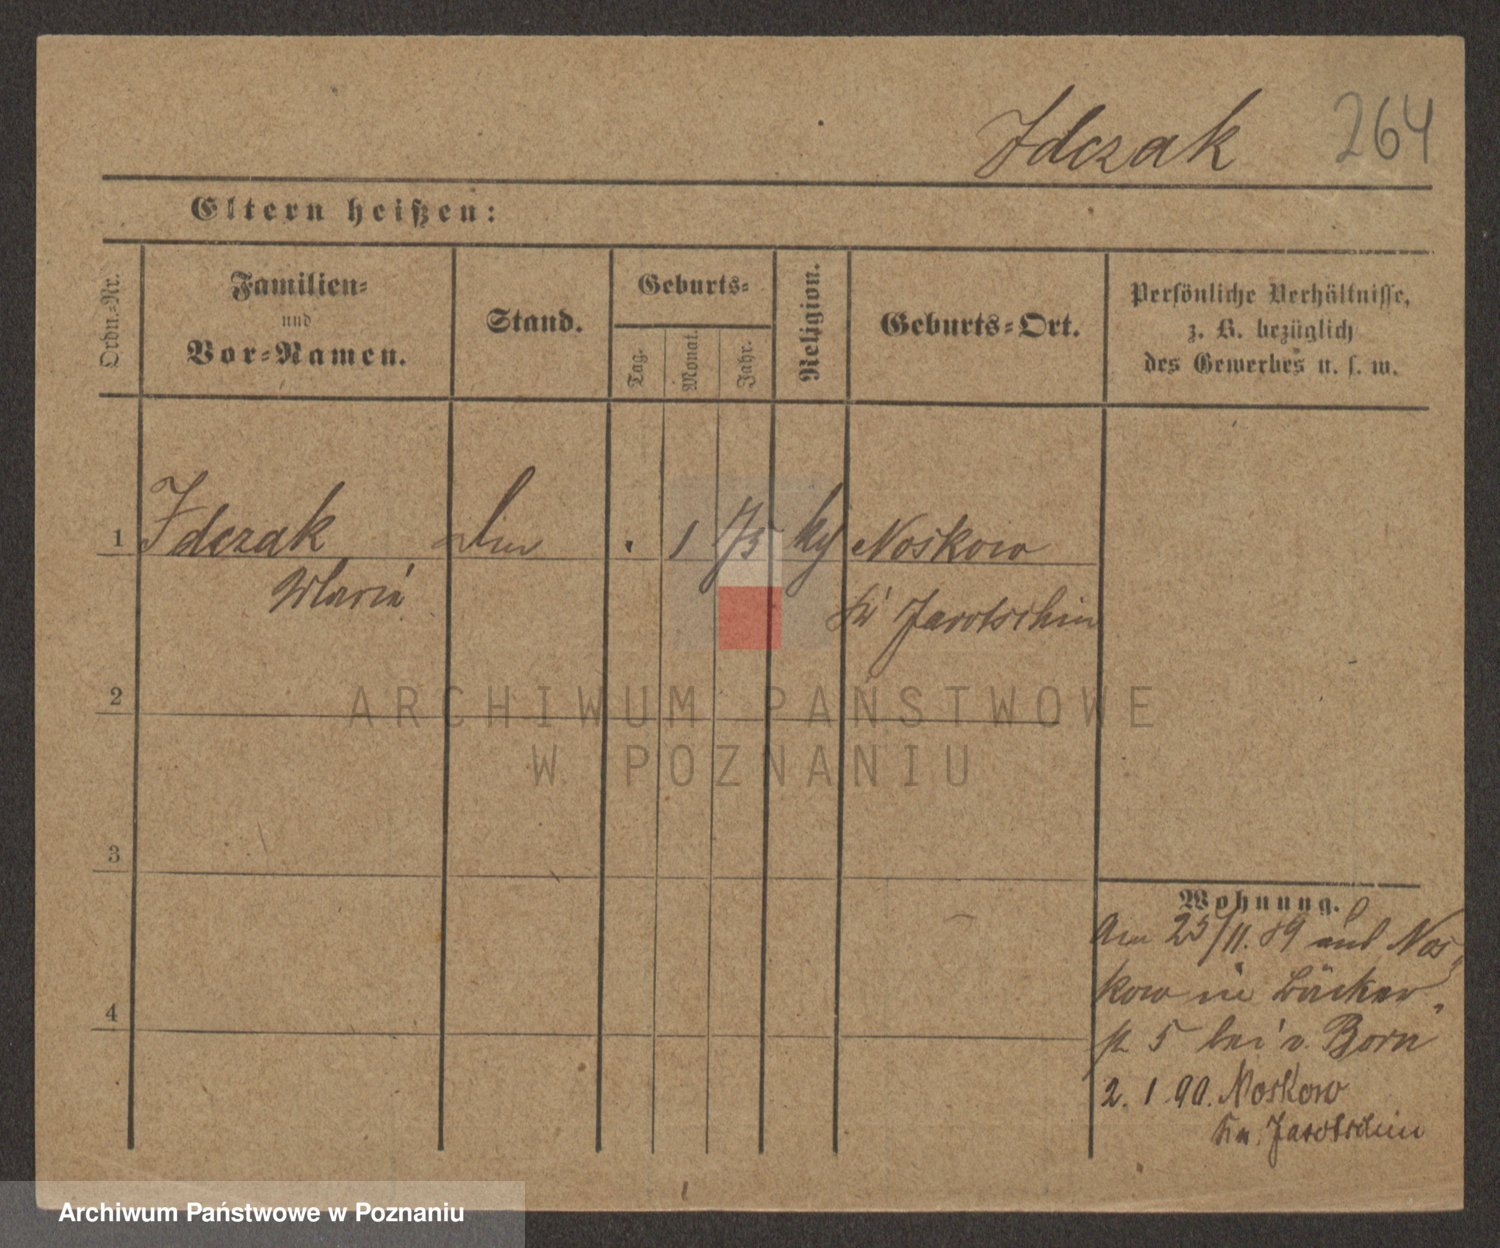 Idczak 264
Eltern heißen:
Ordn.-Nr.
Familien-
und
Vor-Namen.
Stand.
Geburts-
Tag.
Monat.
Jahr.
Religion.
Geburts-Ort.
Persönliche Verhältnisse,
z. B. bezüglich
des Gewerbes u. s. w.
1 Idczak 1 73 Noskow
Marie
Kr Jarotschin
2
ARCHIWUM PAŃSTWOWE
W POZNANIU
3
Wohnung.
Am 25/11. 89 aus Nos-
kow in Bäcker-
st 5 bei v. Born
4
2. 1. 90. Noskow
Kr. Jarotschin
Archiwum Państwowe w Poznaniu